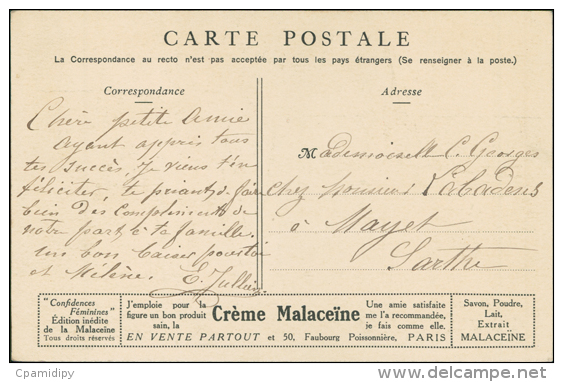 CARTE POSTALE
La Correspondance au recto n'est pas acceptée par tous les pays étrangers (Se renseigner à la poste.)
Correspondance
Chère petite Amie
Ayant appris tous
tes succès. Je viens t'en
féliciter, te priant de faire
bien des compliments de
notre part à ta famille.
un bon baiser pour toi
et Hélène. E. Jullien
Adresse
Mademoiselle C. Georges
chez Monsieur Labadens
à Mayet
Sarthe
"Confidences
Féminines"
Édition inédite
de la Malaceïne
Tous droits réservés
J'emploie pour la
figure un bon produit
sain, la
Crème Malaceïne
Une amie satisfaite
me l'a recommandée,
je fais comme elle.
EN VENTE PARTOUT et 50, Faubourg Poissonnière, PARIS
Savon, Poudre,
Lait,
Extrait
MALACEÏNE
© Cpamidipy
delcampe.net